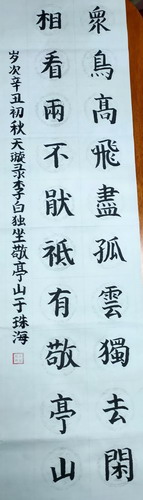 眾鳥高飛盡孤雲獨去閑
相看兩不猒祗有敬亭山
岁次辛丑初秋天璇录李白独坐敬亭山于珠海